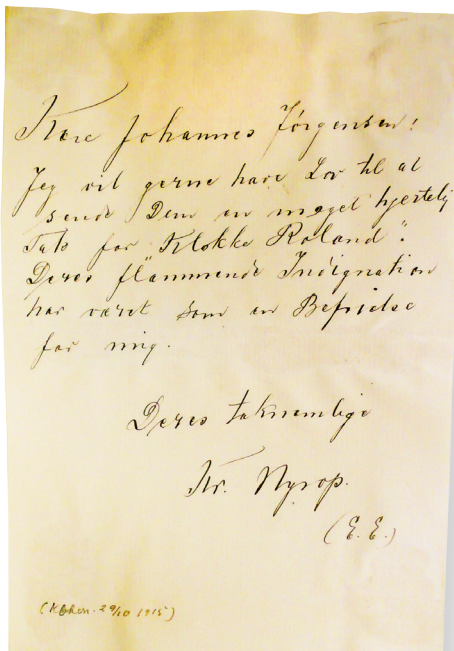 Kære Johannes Jørgensen!
Jeg vil gerne have Lov til at
sende Dem en meget hjertelig
Tak for "Klokke Roland".
Deres flammende Indignation
har været som en Befrielse
for mig.
Deres taknemlige
Kr. Nyrop.
(E. E.)
(Kbhvn. 29/10 1915)